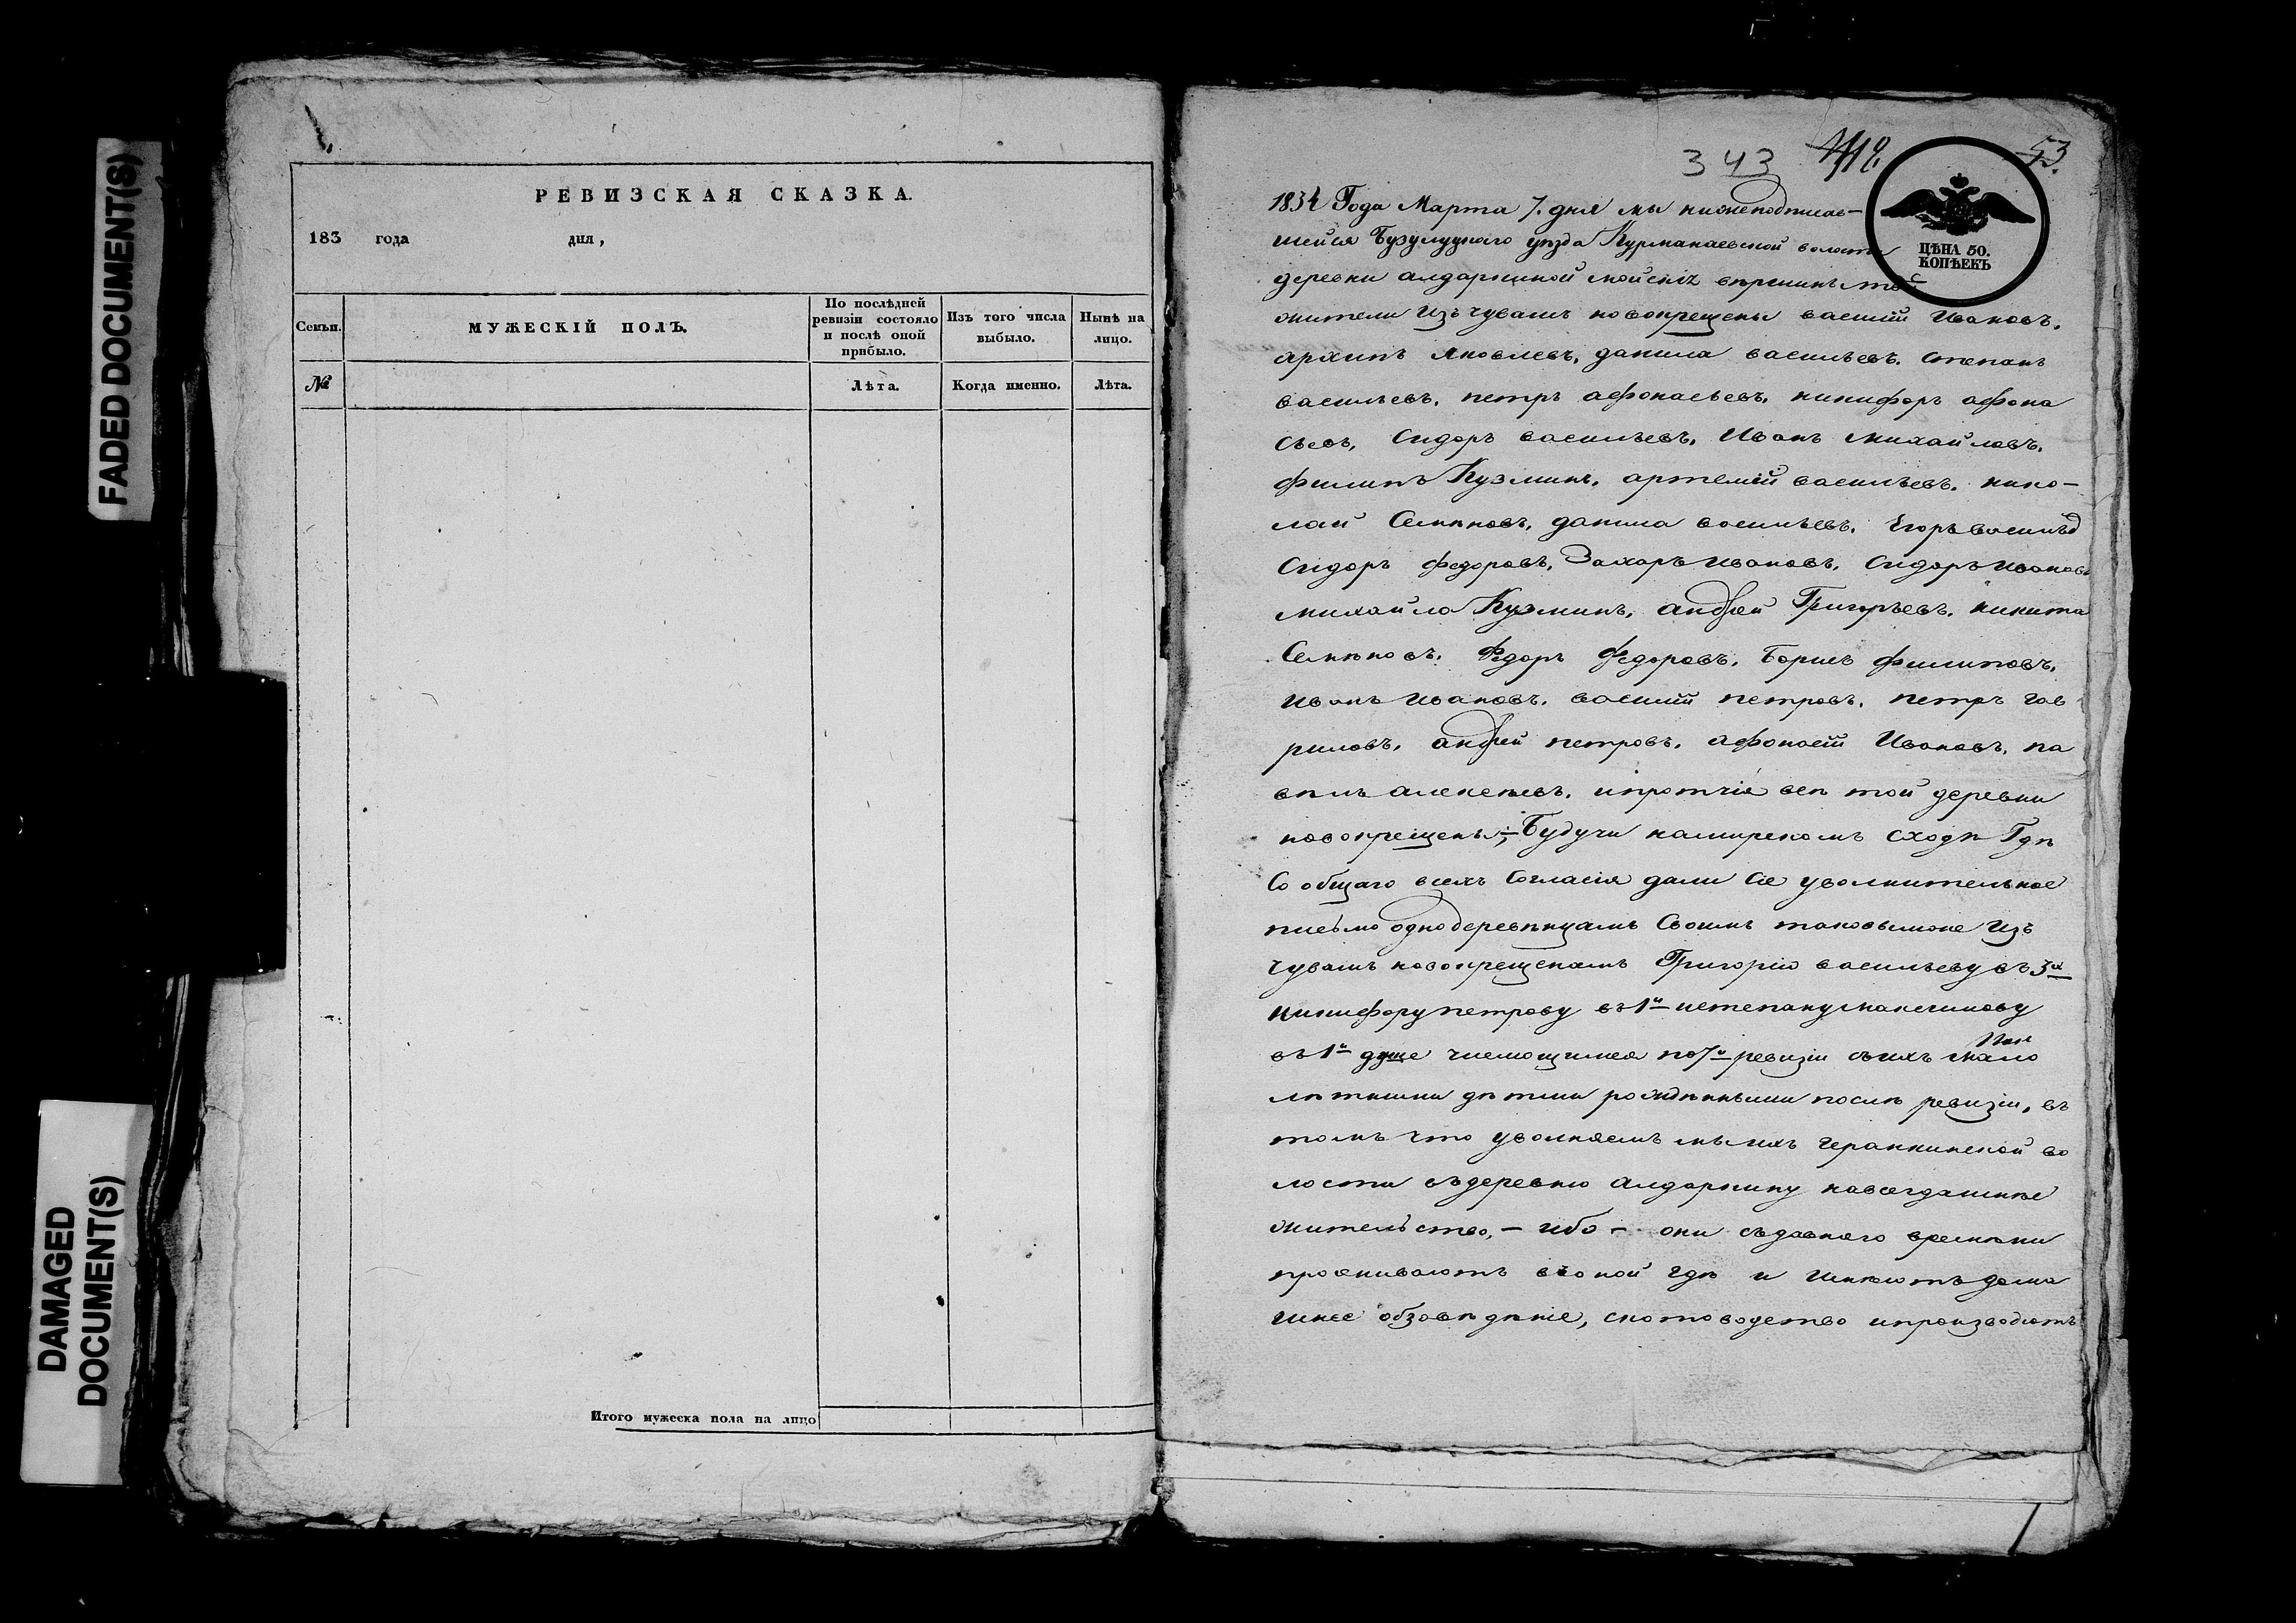 FADED DOCUMENT(S)
DAMAGED
DOCUMENT(S)
РЕВИЗСКАЯ СКАЗКА.
183 года дня,
Семьи. МУЖЕСКІЙ ПОЛЪ. По послѣдней ревизіи состояло и послѣ оной прибыло. Изъ того числа выбыло. Нынѣ на лицо.
№ Лѣта. Когда именно. Лѣта.
Итого мужеска пола на лицо
343 53.
ЦѢНА 50.
КОПѢЕКЪ
1834 Года Марта 7. дня мы нижеподписав-
шейся Бузулуцкаго уѣзда Курманаевской волости
деревни алдаркиной
жители Изъ чувашъ новокрещены василій Ивановъ,
архипъ яковлевъ, данила васильевъ, степанъ
васильевъ, петръ афонасьевъ, никифоръ афона
сьевъ, Сидоръ васильевъ, Иванъ михайловъ,
филипъ Кузминъ, артемій васильевъ, нико-
лай Семѣновъ, данила васильевъ, Егоръ васильевъ
Сидоръ федоровъ, Захаръ ивановъ, Сидоръ ивановъ
михайло Кузминъ, андрей Григорьевъ, никита
Семѣновъ, Федоръ федоровъ, Борисъ филиповъ,
иванъ ивановъ, василій петровъ, петръ гав
риловъ, андрей петровъ, афонасій Ивановъ, па
вѣлъ алексѣевъ, и протчіе всѣ той деревни
новокрещены, Будучи на мирскомъ сходѣ Гдѣ
Со общаго всехъ Согласія дали сіе уволнительное
письмо однодеревѣнцамъ Своимъ таковымже Изъ
чувашъ новокрещенамъ Григорію васильеву въ 3х
никифору петрову въ 1й и степану максимову
въ 1й душе числющимся по 7й ревизіи съ ихъ мало
лѣтными дѣтми рождѣнными послѣ ревизіи, въ
томъ что уволняемъ мы ихъ Геранкинской во
лости въ деревню алдаркину навсегдашнѣе
жительство, - ибо - они съ давняго времѣни
проживаютъ въ оной гдѣ и имѣютъ дома
и обзавѣдѣніе, скотоводство и производютъ